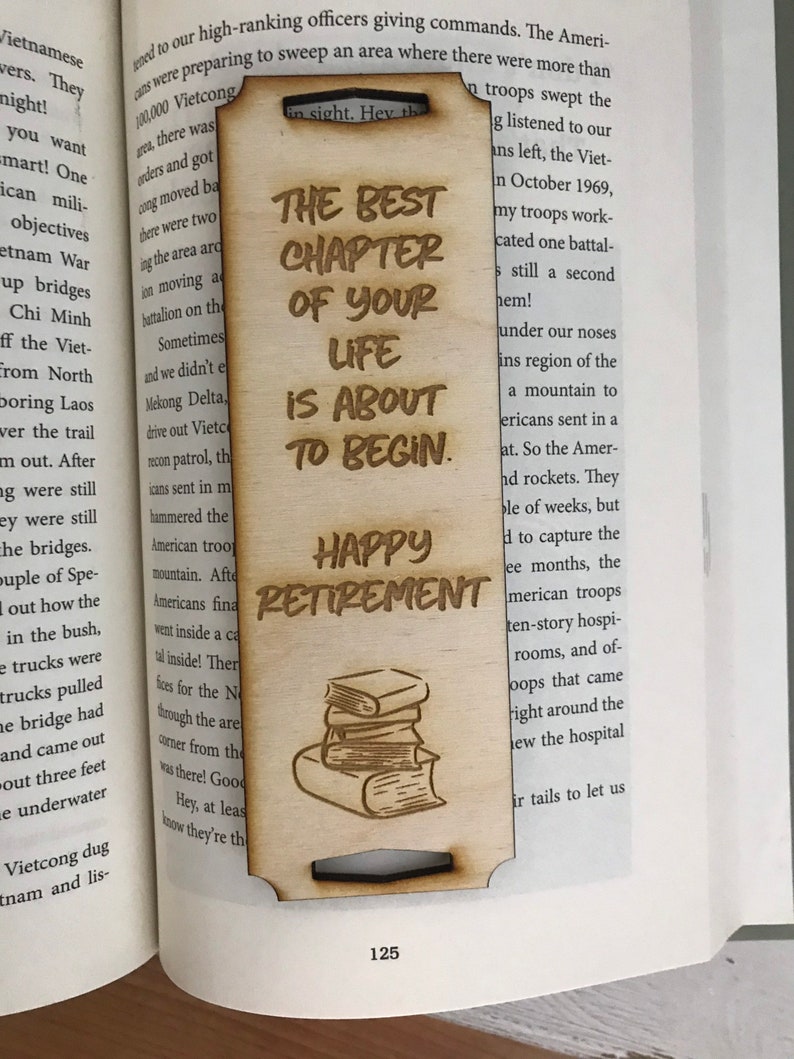 Vietnamese
vers. They
night!
you want
smart! One
ican mili-
objectives
etnam War
up bridges
Chi Minh
ff the Viet-
from North
boring Laos
ver the trail
m out. After
ng were still
ey were still
the bridges.
ouple of Spe-
out how the
in the bush,
e trucks were
trucks pulled
he bridge had
and came out
bout three feet
e underwater
Vietcong dug
tnam and lis-
tened to our high-ranking officers giving commands. The Ameri-
cans were preparing to sweep an area where there were more than
100,000 Vietcong in sight. Hey, th n troops swept the
area, there was g listened to our
orders and got ans left, the Viet-
cong moved ba n October 1969,
there were two my troops work-
ing the area aro cated one battal-
ion moving ac s still a second
battalion on the hem!
Sometimes under our noses
and we didn't e ins region of the
Mekong Delta, a mountain to
drive out Vietc ericans sent in a
recon patrol, th at. So the Amer-
icans sent in m nd rockets. They
hammered the ple of weeks, but
American troop d to capture the
mountain. Afte ee months, the
Americans fina merican troops
went inside a ca ten-story hospi-
tal inside! Ther rooms, and of-
fices for the N oops that came
through the are right around the
corner from the ew the hospital
was there! Good
Hey, at leas ir tails to let us
know they're th
THE BEST
CHAPTER
OF YOUR
LIFE
IS ABOUT
TO BEGIN.
HAPPY
RETIREMENT
125